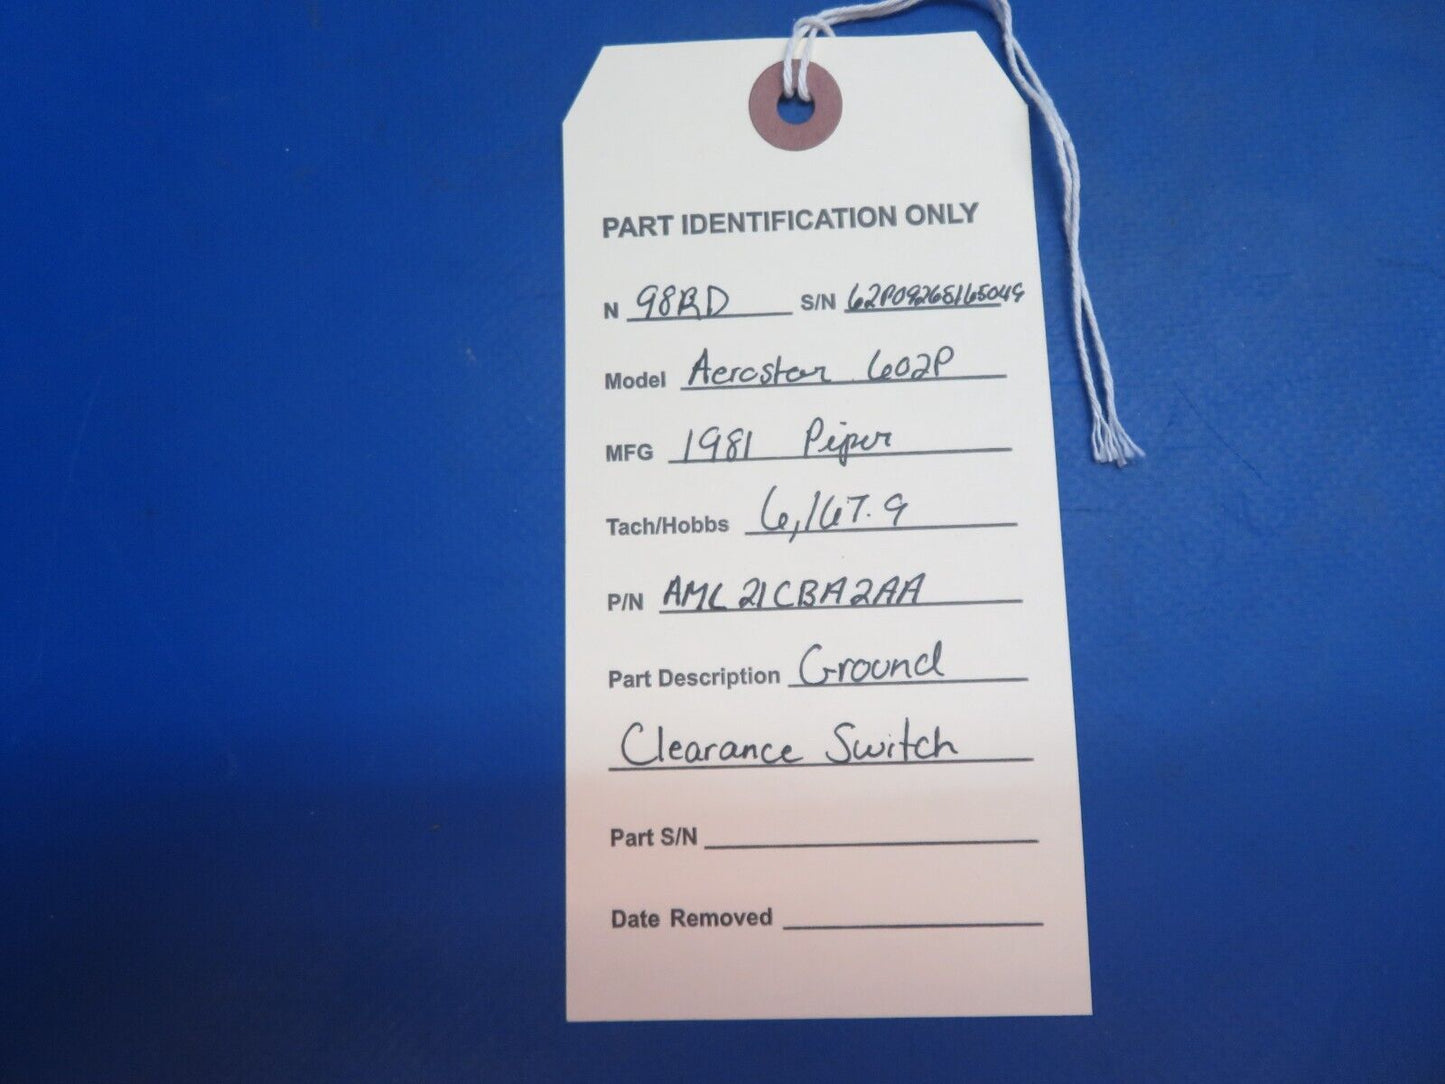 PART IDENTIFICATION ONLY
N 98RD S/N 62P09268165049
Model Aerostar 602P
MFG 1981 Piper
Tach/Hobbs 6,167.9
P/N AML 21CBA2AA
Part Description Ground
Clearance Switch
Part S/N
Date Removed